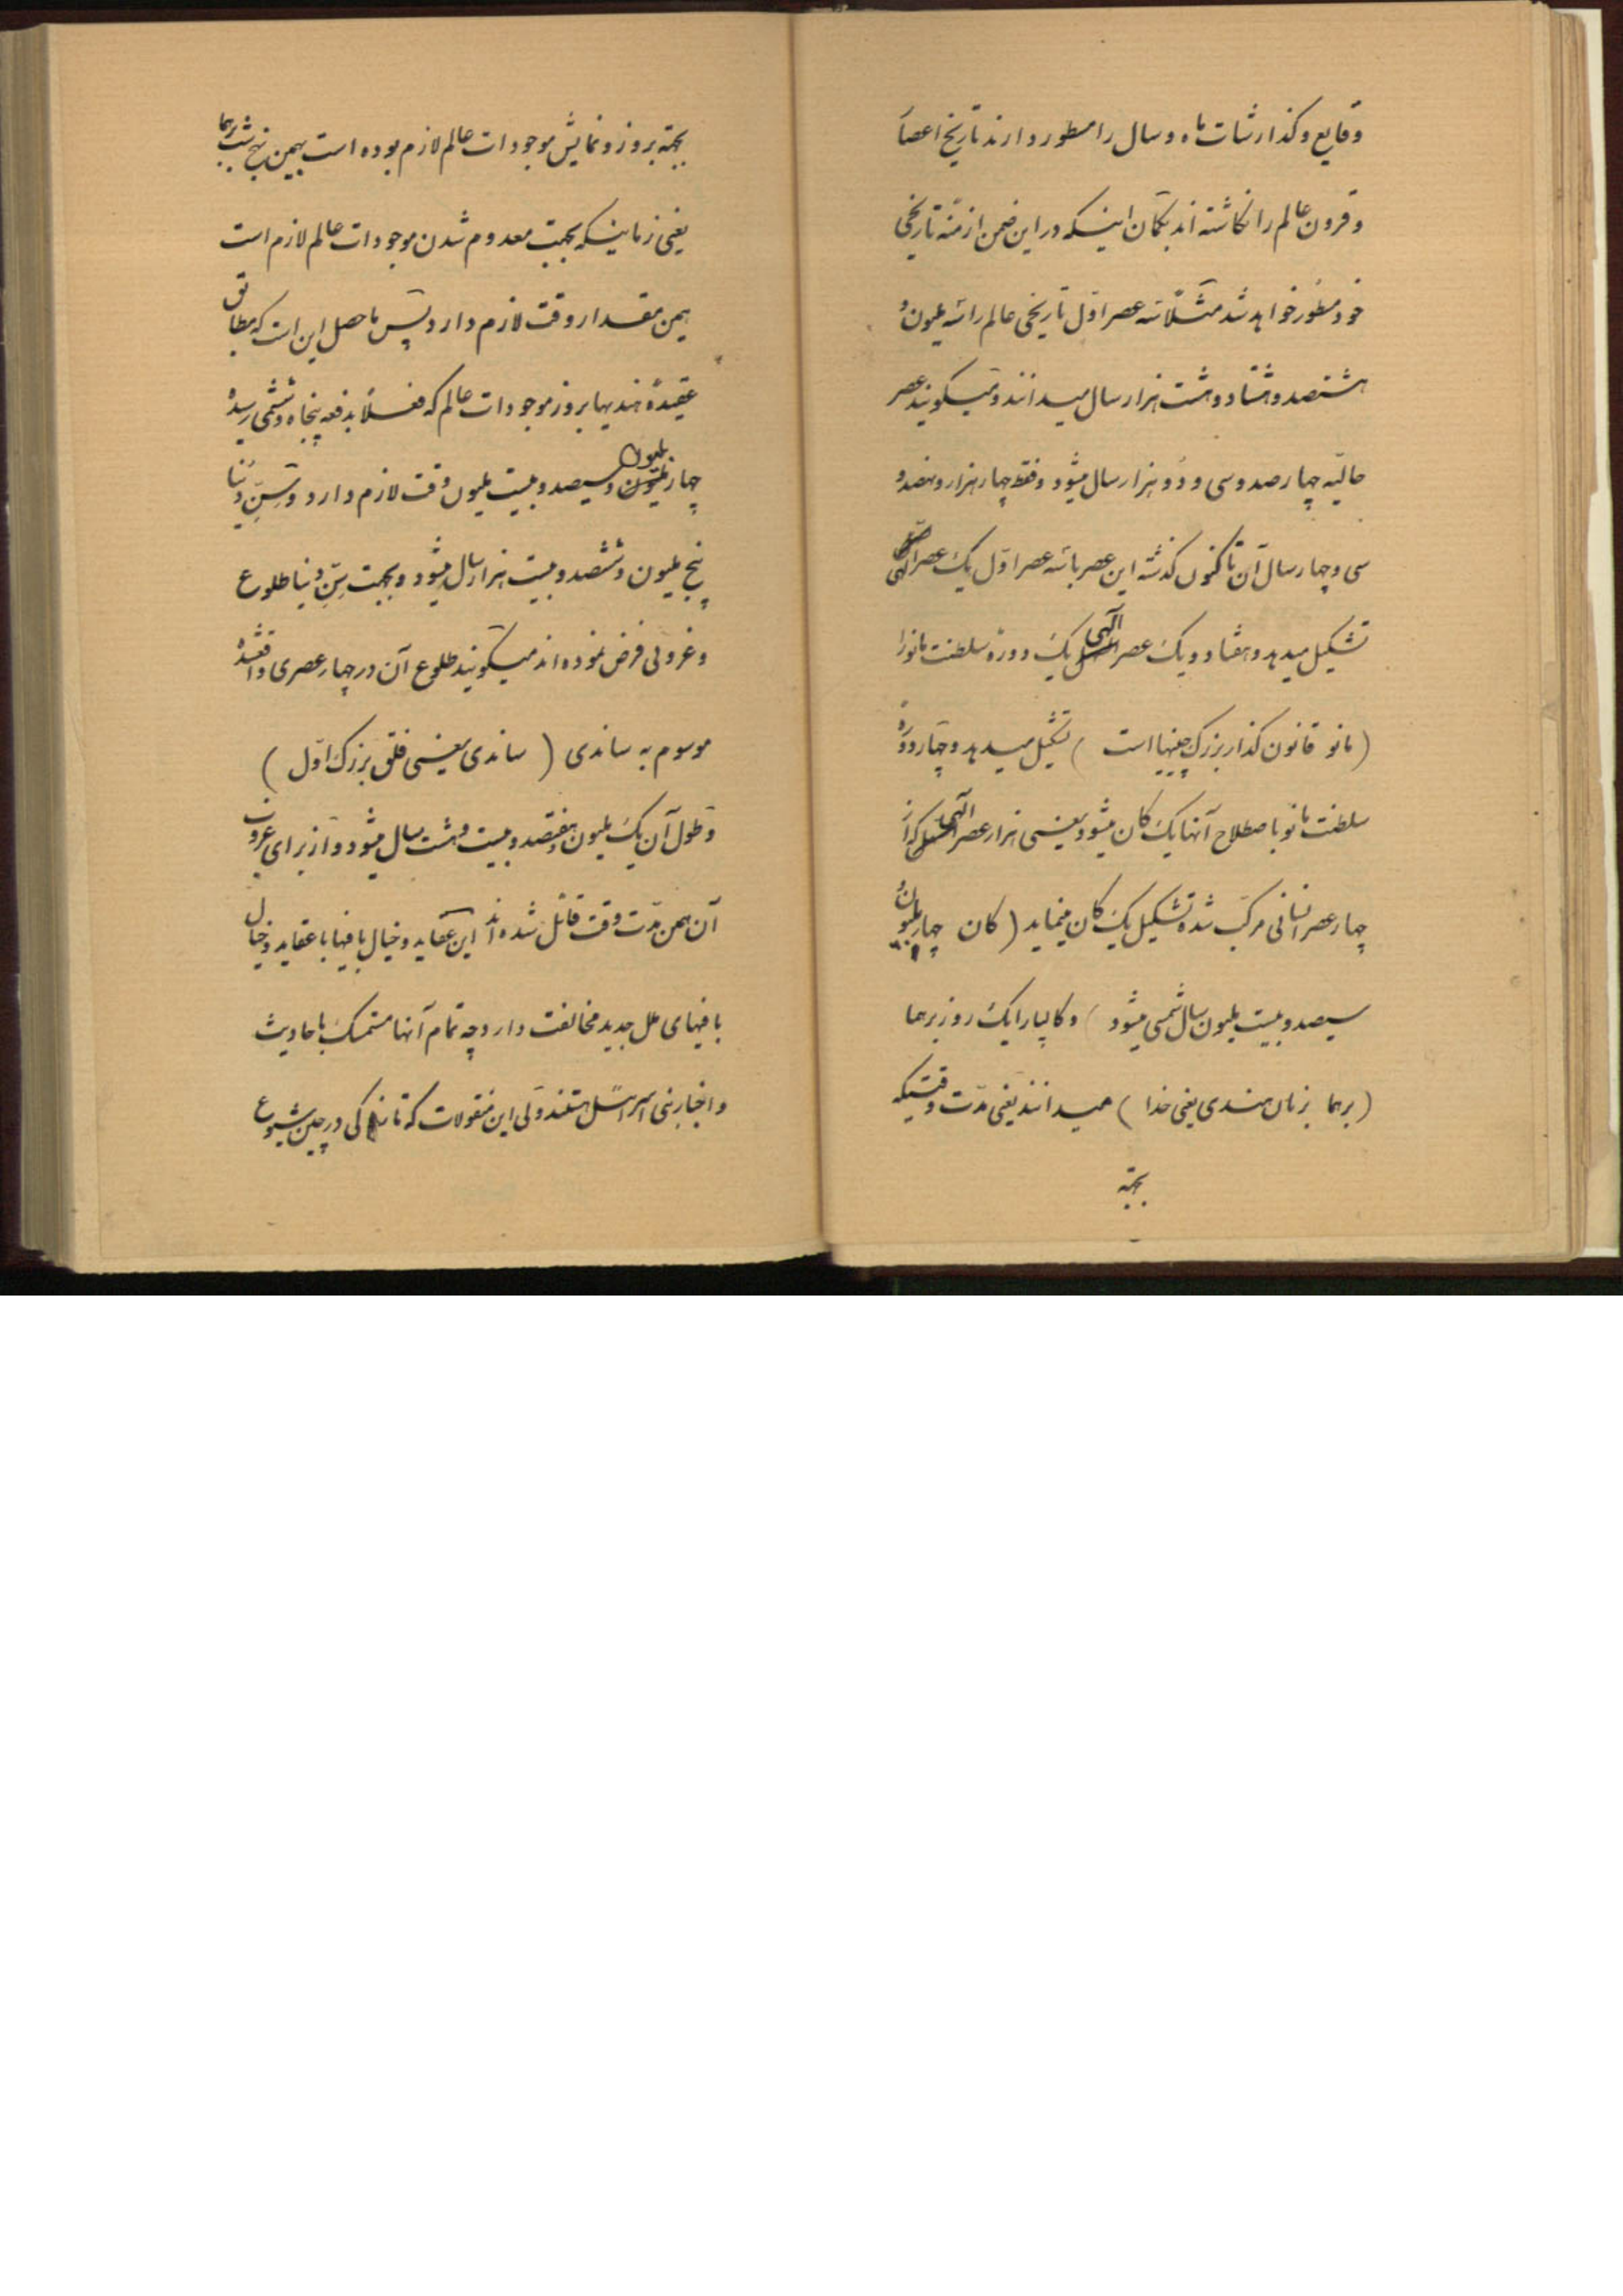 وقایع و گذارشات ماه و سال را مسطور دارند تاریخ اعصار
و قرون عالم را نگاشته اند بگمان اینکه در این ضمن ازمنه تاریخی
خود مسطور خواهد شد مثلا سه عصر اول تاریخی عالم را سه ملیون و
هشتصد و هشتاد و هشت هزار سال میدانند و میگویند عصر
حالیه چهار صد و سی و دو هزار سال میشود و فقط چهار هزار و نهصد و
سی و چهار سال آن تا کنون گذشته این عصر با سه عصر اول یک عصر الهی
تشکیل میدهد و هفتاد و یک عصر الهی یک دوره سلطنت مانو را
(مانو قانون گذار بزرگ چینیها است) تشکیل میدهد و چهارده دوره
سلطنت مانو باصطلاح آنها یک کان میشود یعنی هزار عصر الهی که از
چهار عصر انسانی مرکب شده تشکیل یک کان مینماید (کان چهار بلیون و
سیصد و بیست ملیون سال شمسی میشود) و کالپا را یک روز برهما
(برهما بزبان هندی یعنی خدا) میدانند یعنی مدت وقتیکه
بجهة
بجهة بروز و نمایش موجودات عالم لازم بوده است بهمین نهج شب برهما
یعنی زمانیکه بجهت معدوم شدن موجودات عالم لازم است
همین مقدار وقت لازم دارد پس ماحصل این است که مطابق
عقیدهٔ هندیها بروز موجودات عالم که فعلاً بدفعه پنجاه و ششمی رسیده
چهار بلیون و سیصد و بیست ملیون وقت لازم دارد و سن دنیا
پنج ملیون و ششصد و بیست هزار سال میشود و بجهت سن دنیا طلوع
و غروبی فرض نموده اند میگویند طلوع آن در چهار عصری واقعشده
موسوم به ساندی (ساندی یعنی فلق بزرگ اول)
و طول آن یک ملیون و هفتصد و بیست و هشت سال میشود و از برای غروب
آن همین مدت وقت قائل شده اند این عقاید و خیال بافیها با عقاید و خیال
بافیهای ملل جدید مخالفت دارد چه تمام آنها متمسک باحادیث
و اخبار بنی اسرائیل هستند ولی این منقولات که در چین شیوع